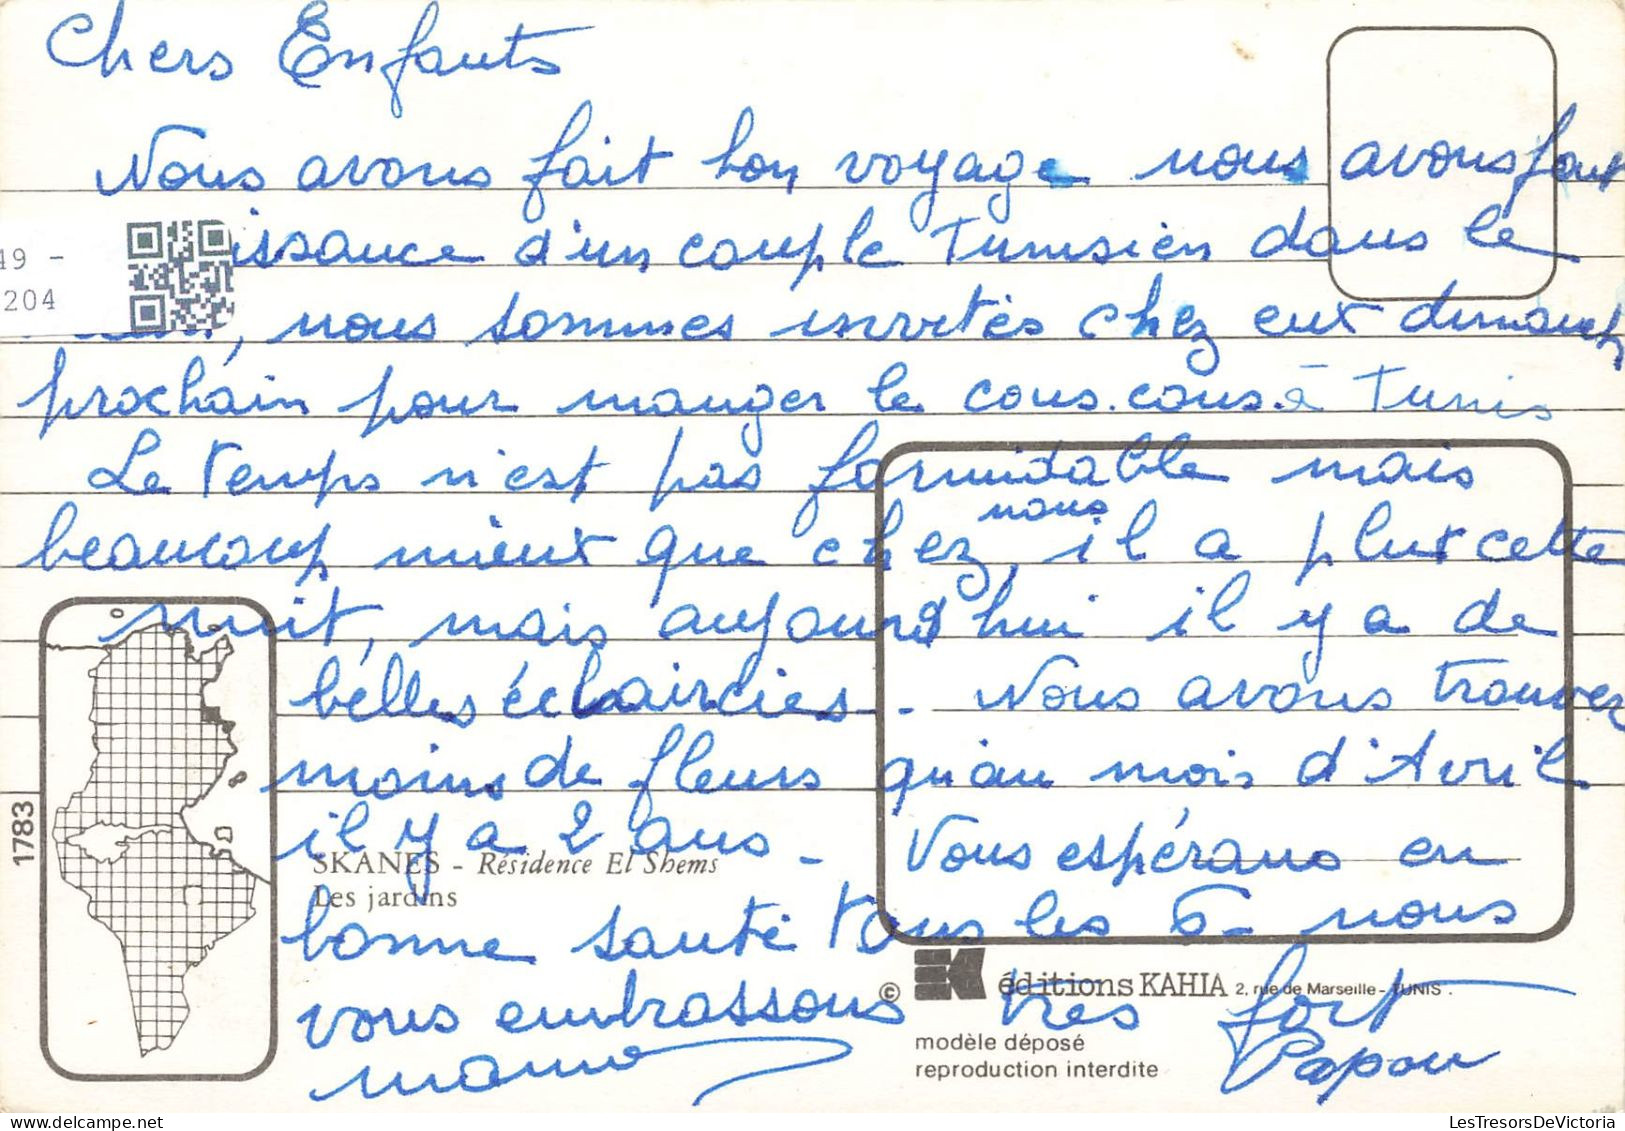 Chers Enfants
Nous avons fait bon voyage nous avons fait
issance d'un couple Tunisien dans le
49 -
204
, nous sommes invités chez eux dimanch
prochain pour manger le cous.cous. à Tunis
Le temps n'est pas formidable mais
nous
beaucoup mieux que chez, il a plut cette
nuit, mais aujourd'hui il y a de
belles éclaircies. Nous avons trouver
moins de fleurs qu'au mois d'Avril
il y a 2 ans - Vous espérans en
SKANES - Résidence El Shems
Les jardins
bonne santé tous les 6 - nous
vous embrassons très fort
mamie Papou
1783
© K éditions KAHIA 2, rue de Marseille - TUNIS .
modèle déposé
reproduction interdite
LesTresorsDeVictoria